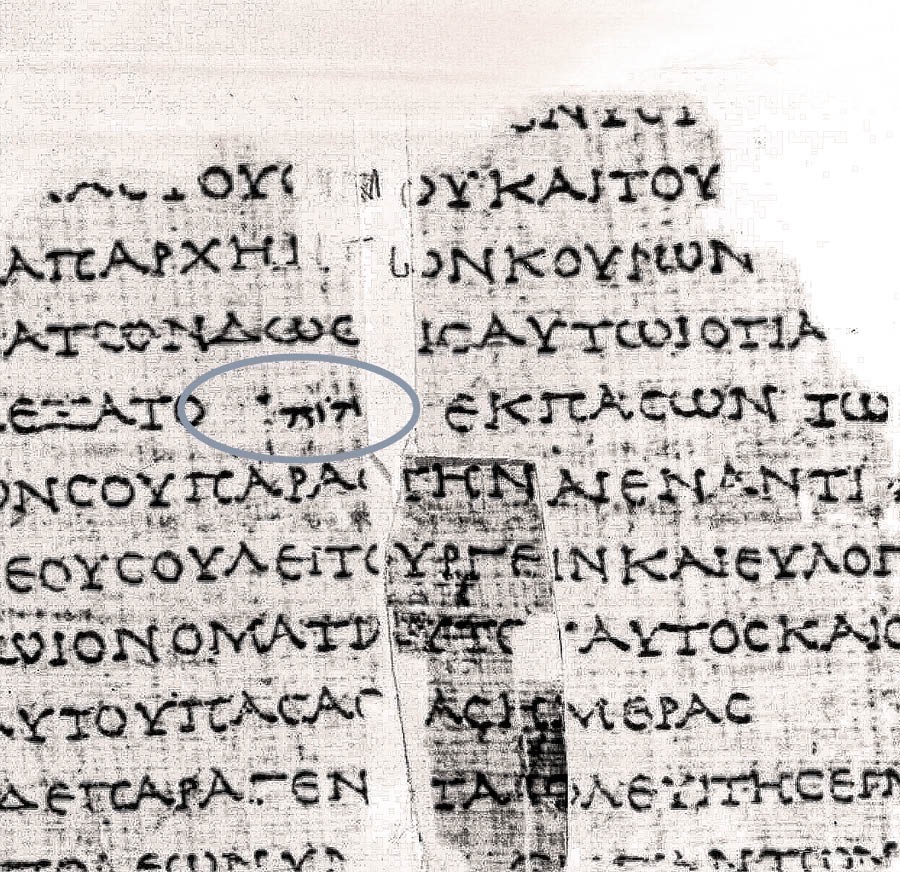 ΟΥϹ ΟΥΚΑΙΤΟΥ
ΑΠΑΡΧΗ ΩΝΚΟΥΡΩΝ
ΑΤΩΝΔΩϹΕ ΙϹΑΥΤΩΙΟΤΙΑ
ΕΞΑΤΟ יהוה ΕΚΠΑϹΩΝ ΤΩ
ΩΝϹΟΥΠΑΡΑϹ ΤΗΝΑΙΕΝΑΝΤΙ
ΕΟΥϹΟΥΛΕΙΤΟΥΡΓΕΙΝΚΑΙΕΥΛΟΓ
ΩΙΟΝΟΜΑΤΙΑΥΤΟ ΑΥΤΟϹΚΑΙΟ
ΑΥΤΟΥΠΑϹΑϹ ΤΑϹΗΜΕΡΑϹ
ΔΕΠΑΡΑΓΕΝ ΤΑΙΟΛΕΥΙΤΗϹΕΓΜ